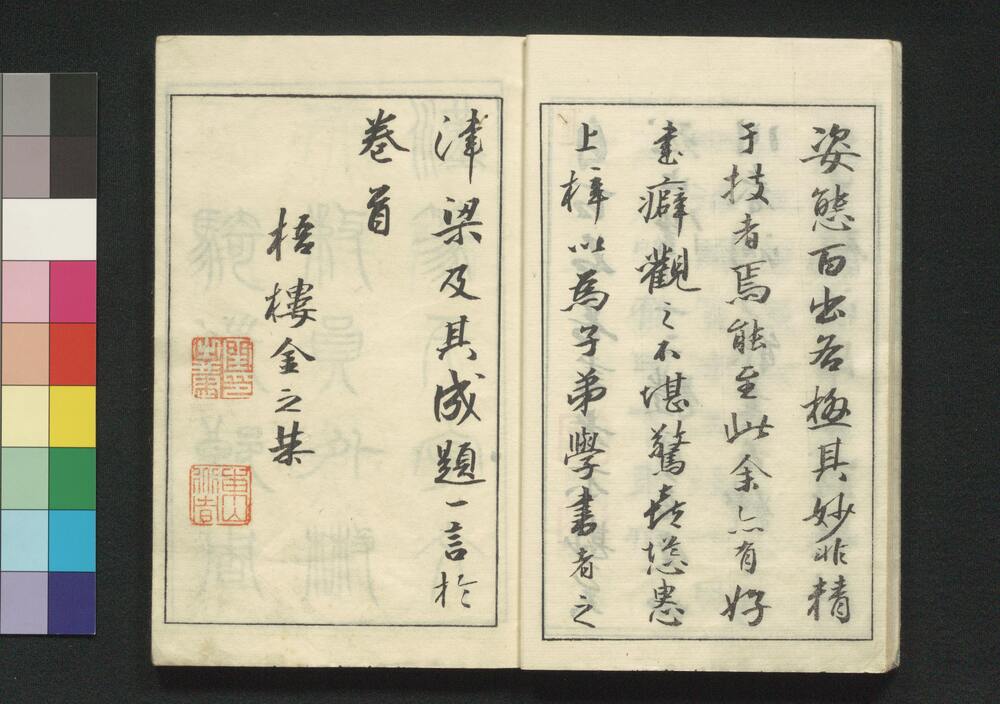 姿態百出各極其妙非精
于技者焉能至此余亦有好
書癖觀之不堪驚喜慫恿
上梓以為子弟學書者之
津梁及其成題一言於
卷首
梧樓金之